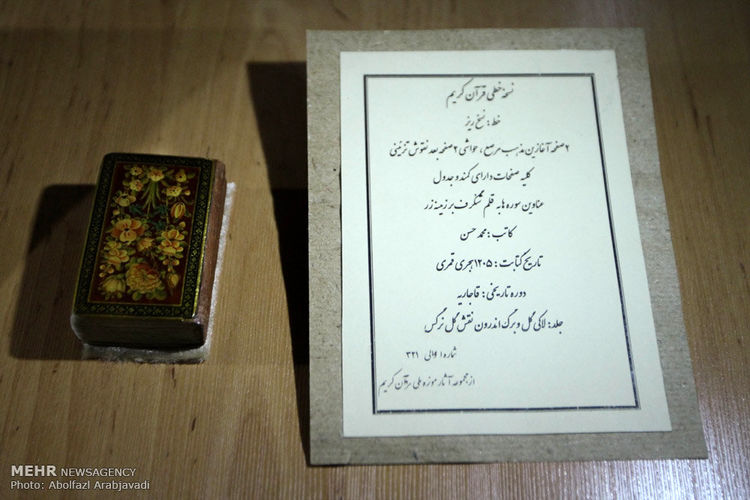 نسخه خطی قرآن کریم
خط: نسخ ریز
۲ صفحه آغازین مذهب مرصع، حواشی ۲ صفحه بعد نقوش تزئینی
کلیه صفحات دارای کمند و جدول
عناوین سوره ها به قلم شنگرف بر زمینه زر
کاتب: محمد حسن
تاریخ کتابت: ۱۲۰۵ هجری قمری
دوره تاریخی: قاجاریه
جلد: لاکی گل و برگ اندرون نقش گل نرگس
شماره اموالی ۳۲۱
از مجموعه آثار موزه ملی قرآن کریم
MEHR NEWSAGENCY
Photo: Abolfazl Arabjavadi